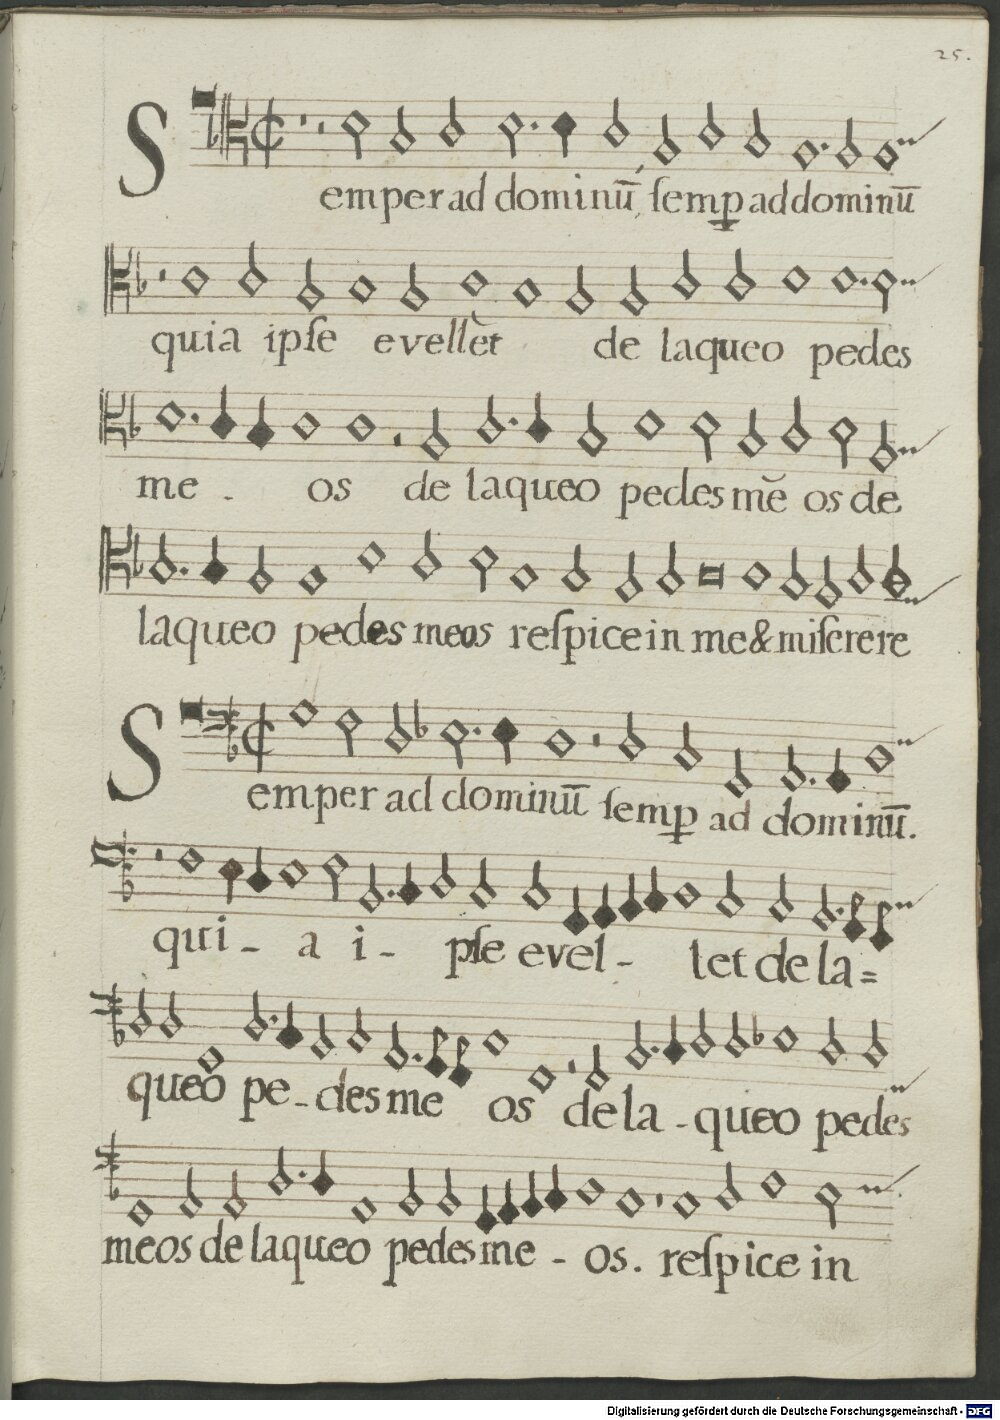 25.
Semper ad dominū, ſemꝑ ad dominū
quia ipſe evellèt de laqueo pedes
me - os de laqueo pedes mĕ os de
laqueo pedes meos reſpice in me & miſerere
Semper ad dominū ſemꝑ ad dominū.
qui - a i - pſe evel - let de la =
queo pe - des me os de la - queo pedes
meos de laqueo pedes me - os. reſpice in
Digitalisierung gefördert durch die Deutsche Forschungsgemeinschaft - DFG